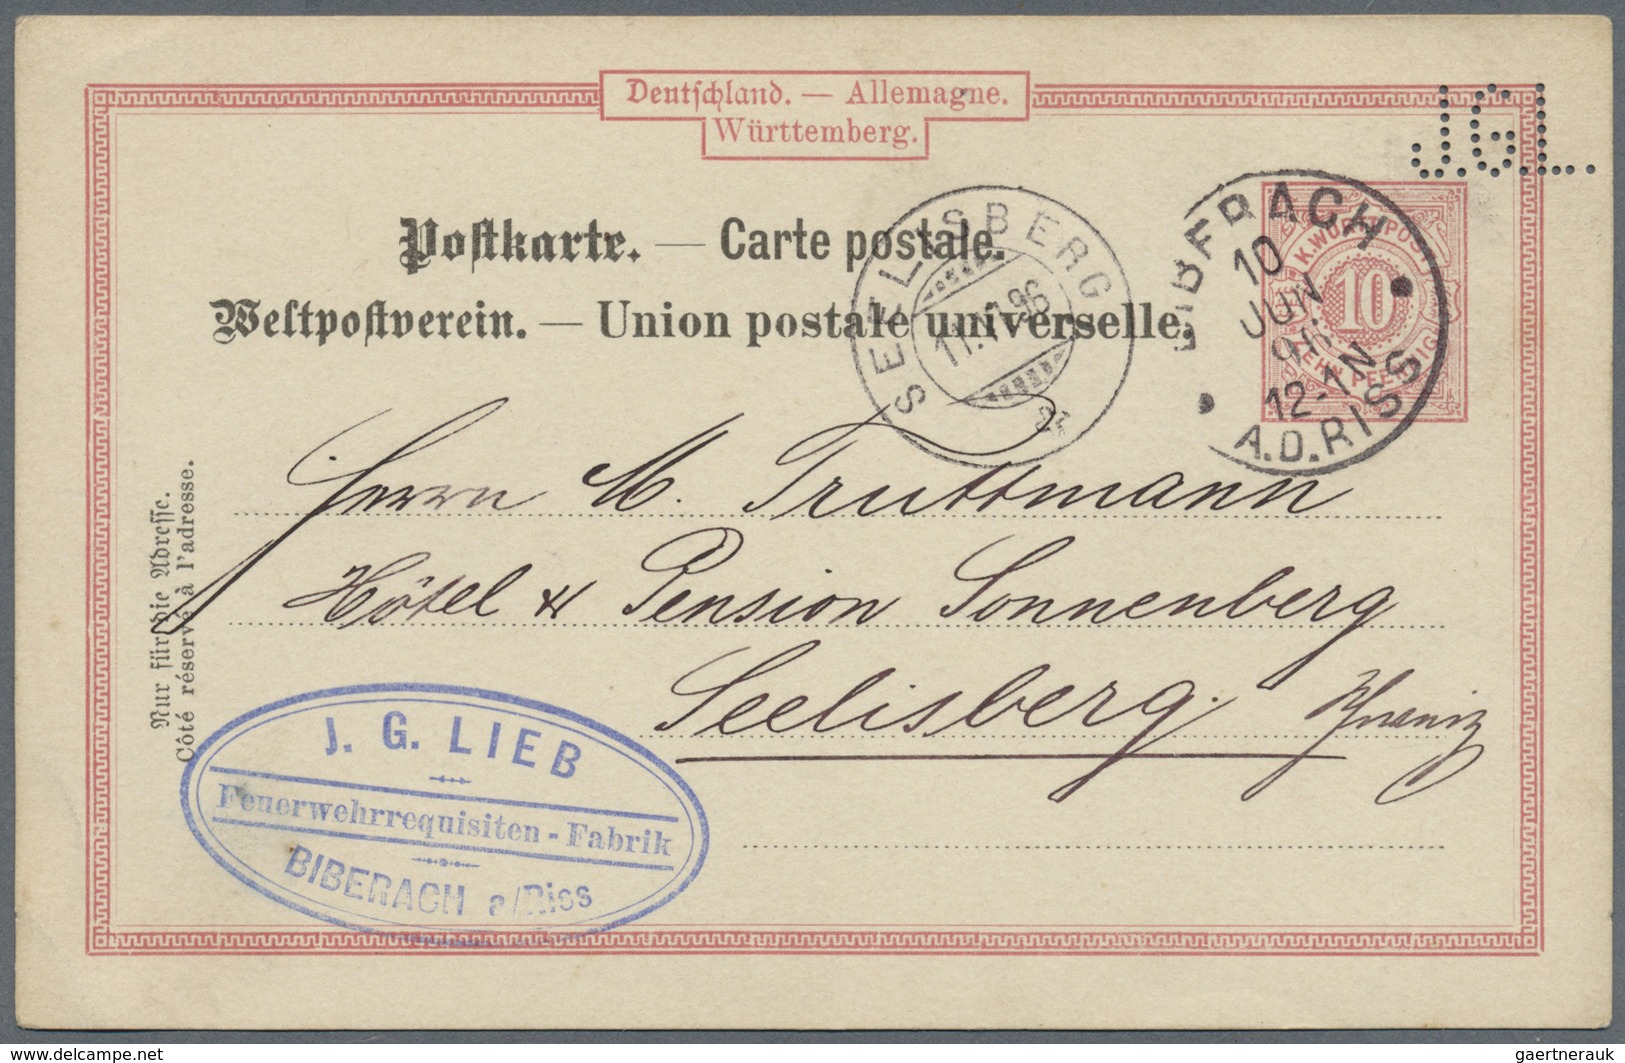 Deutschland. — Allemagne.
Württemberg.
J.G.L.
Postkarte. — Carte postale.
Weltpostverein. — Union postale universelle.
SEELISBERG
BIBERACH
10
JUN
96
12-1N
A.D.RISS
K. WÜRTT. POST
10
ZEHN PFENNIG
Herrn M. Truttmann
Hôtel & Pension Sonnenberg
Seelisberg. Schweiz
Nur für die Adresse.
Côté réservé à l'adresse.
J. G. LIEB
Feuerwehrrequisiten-Fabrik
BIBERACH a/Riss
www.delcampe.net
gaertnerauk